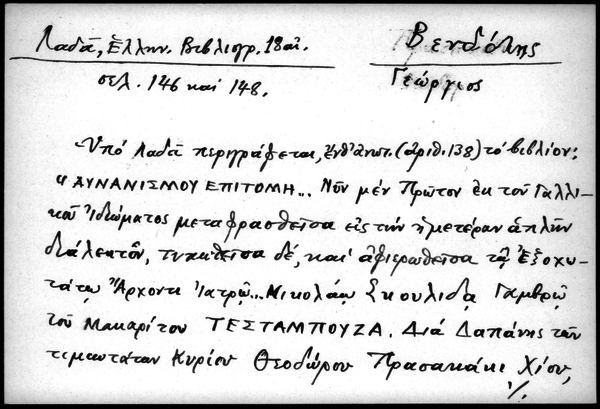 Λαδᾶ, Ἑλλην. Βιβλιογρ. 18 αἰ.
σελ. 146 καὶ 148.
Βενδότης
Γεώργιος
Ὑπὸ Λαδᾶ περιγράφεται, ἔνθ' ἀνωτ. (ἀριθ. 138) τὸ βιβλίον:
"ΑΥΝΑΝΙΣΜΟΥ ΕΠΙΤΟΜΗ... Νῦν μὲν Πρῶτον ἐκ τοῦ Γαλλι-
κοῦ Ἰδιώματος μεταφρασθεῖσα εἰς τὴν ἡμετέραν ἁπλῆν
διάλεκτον, τυπωθεῖσα δέ, καὶ ἀφιερωθεῖσα τῷ Ἐξοχω-
τάτῳ Ἄρχοντι Ἰατρῷ... Νικολάῳ Σκουλίδᾳ Γαμβρῷ
τοῦ Μακαρίτου ΤΕΣΤΑΜΠΟΥΖΑ. Διὰ Δαπάνης τῶν
τιμιωτάτων Κυρίου Θεοδώρου Πρασακάκι Χίου,
./.